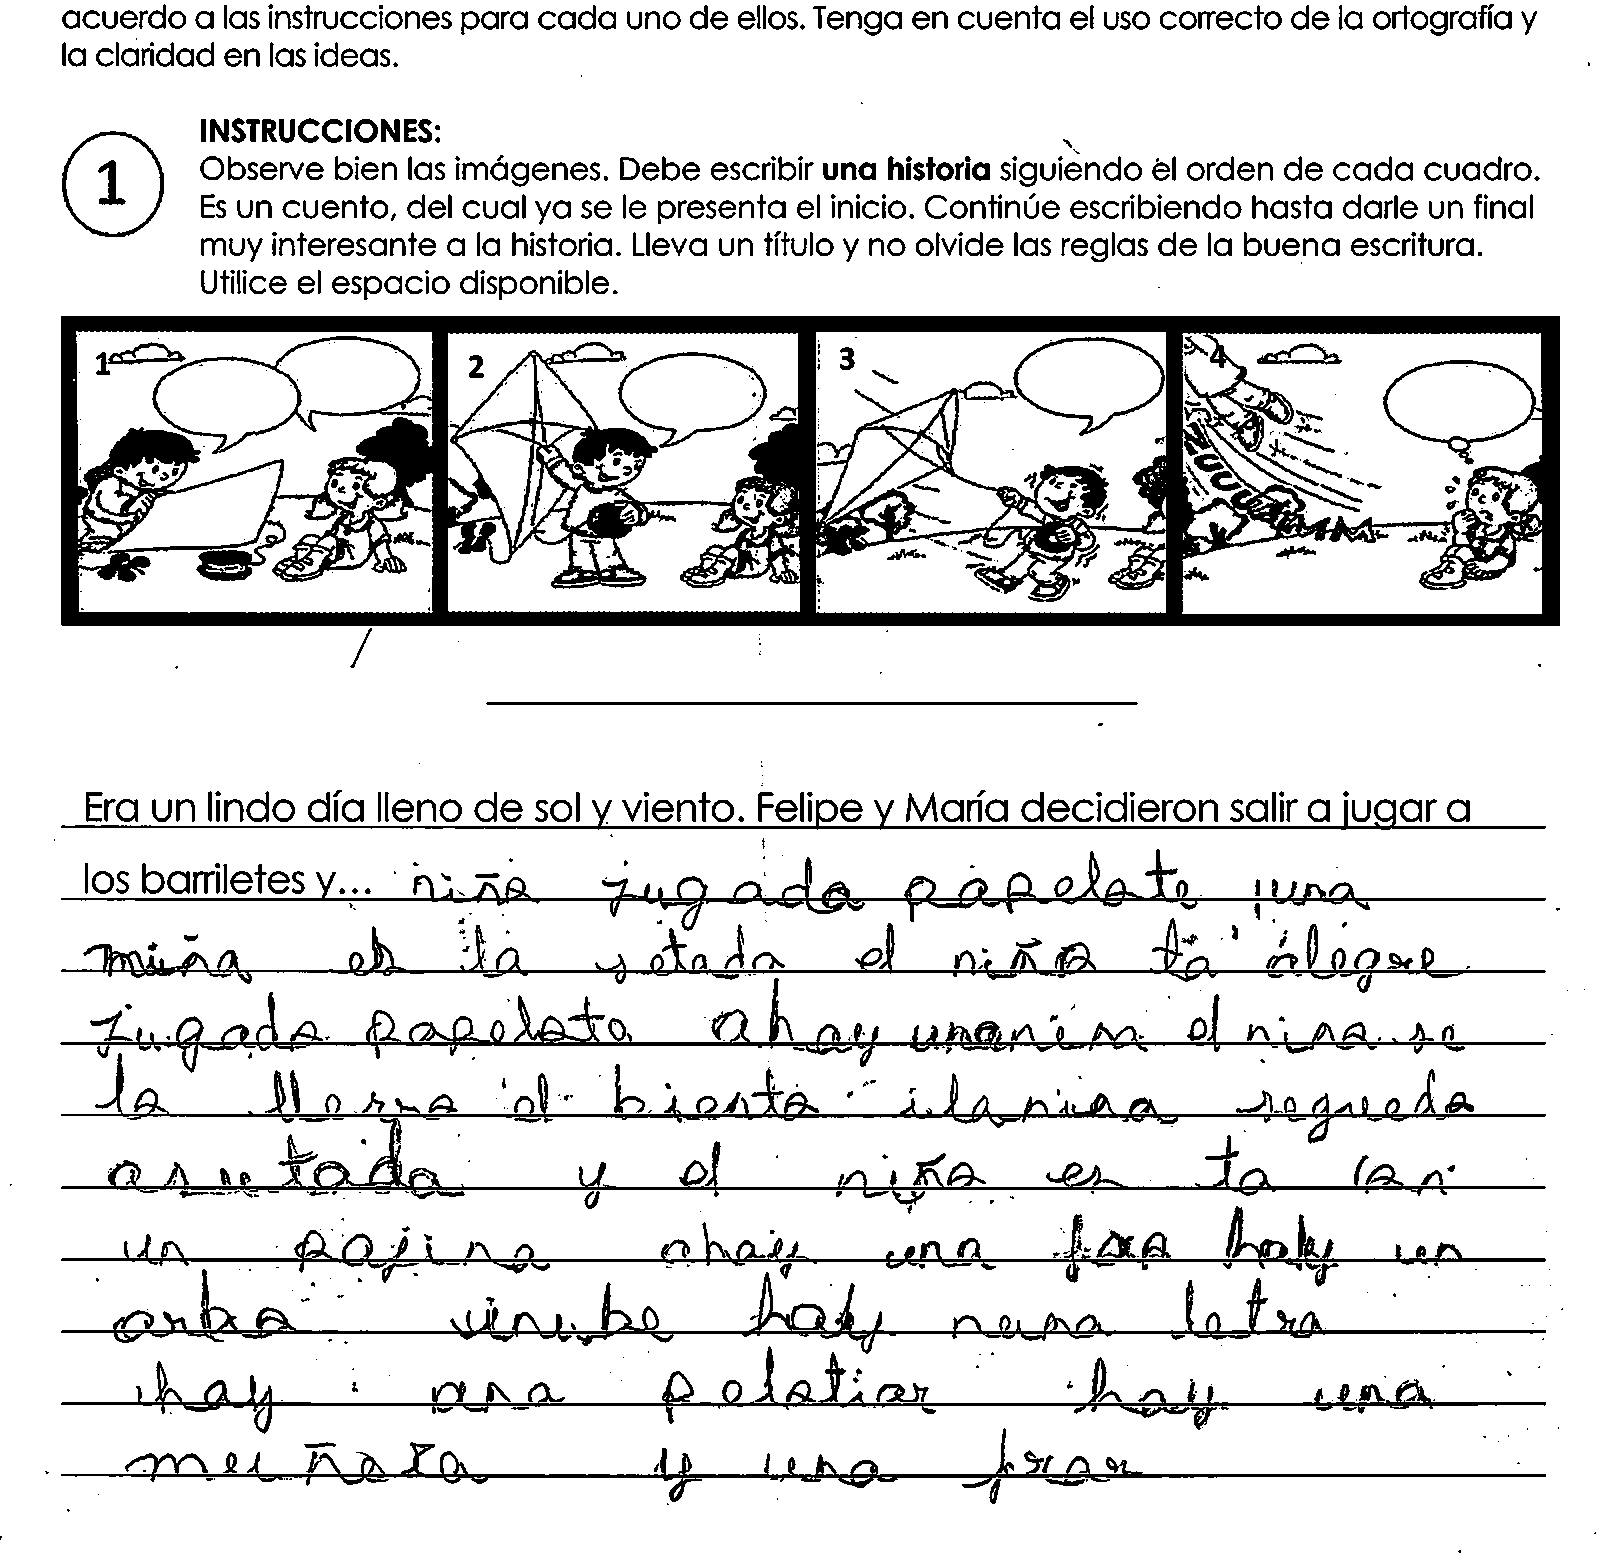 acuerdo a las instrucciones para cada uno de ellos. Tenga en cuenta el uso correcto de la ortografía y
la claridad en las ideas.
1
INSTRUCCIONES:
Observe bien las imágenes. Debe escribir una historia siguiendo el orden de cada cuadro.
Es un cuento, del cual ya se le presenta el inicio. Continúe escribiendo hasta darle un final
muy interesante a la historia. Lleva un título y no olvide las reglas de la buena escritura.
Utilice el espacio disponible.
1 2 3 4
Era un lindo día lleno de sol y viento. Felipe y María decidieron salir a jugar a
los barriletes y... niña jugada papelate una
es ta setada el niña ta alegre
jugada papelato ahay el nina se
la el bienta ilanina sequeda
asutada y el niña es ta
un pajina ahay una hay un
arba hay letra
hay una hay una
y una